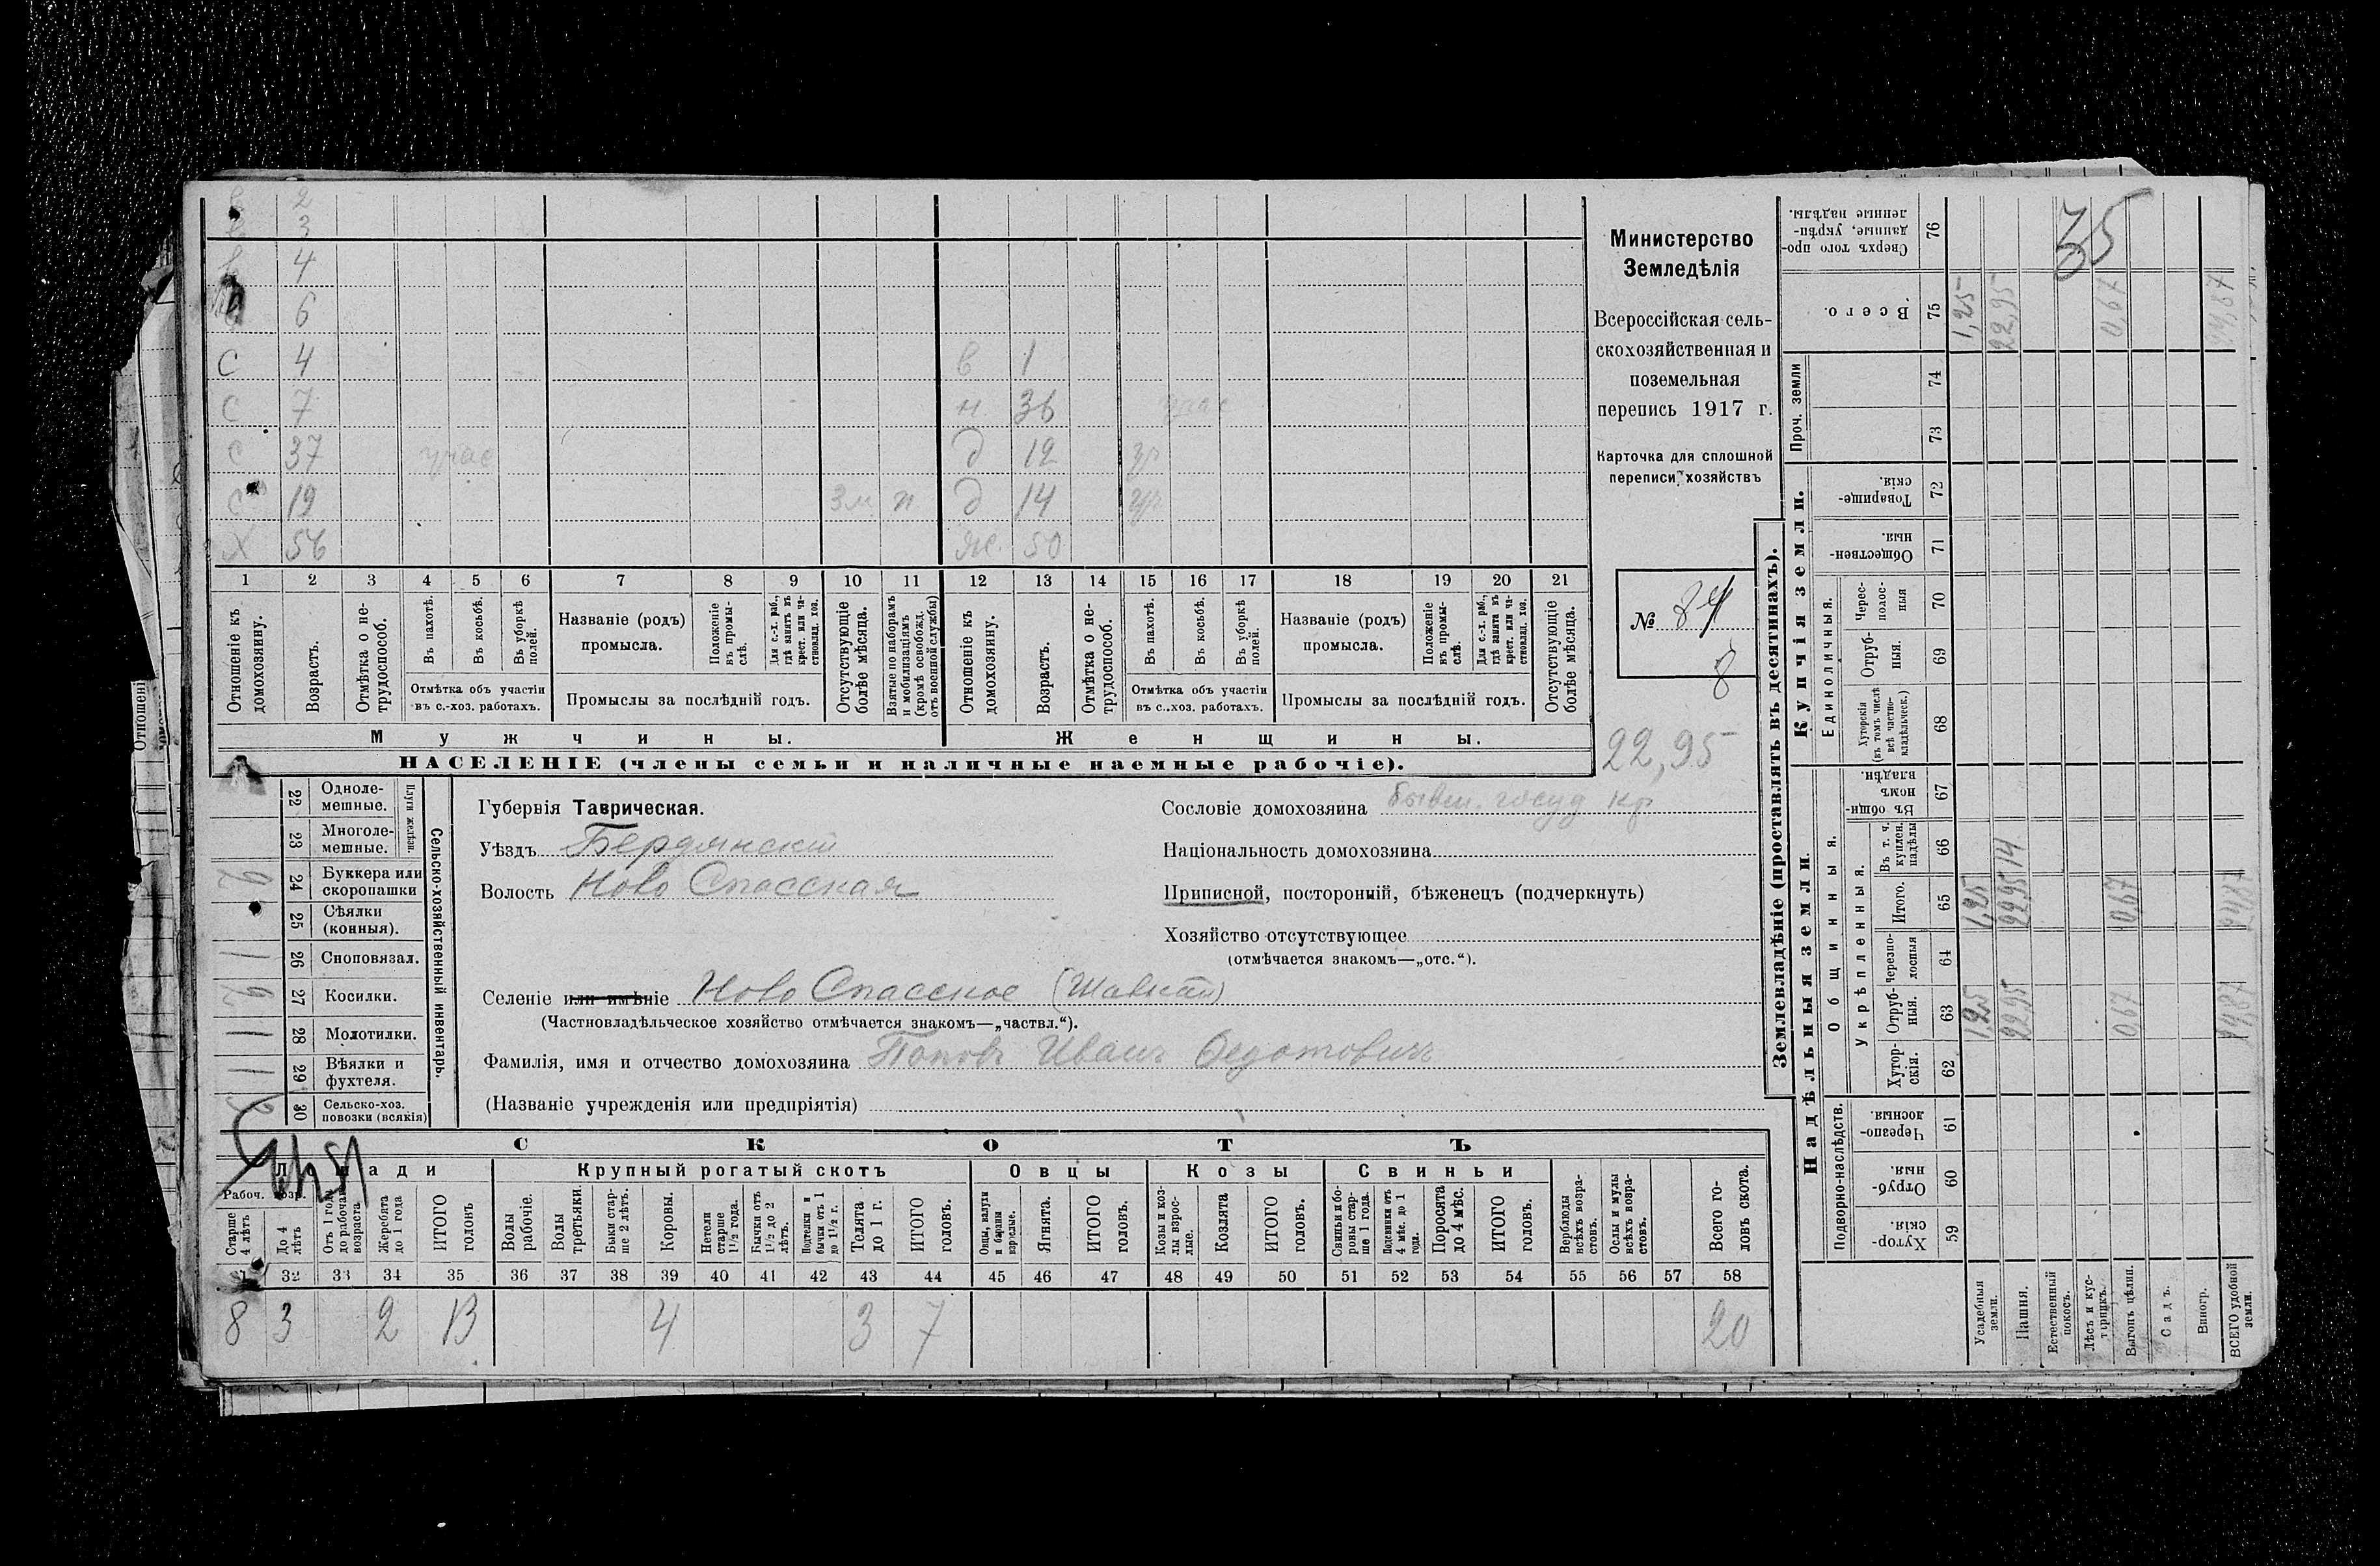 в 2
3
4
6
С 4 в 1
С 7 н 36
С 37 учас д 12
С 19 3м п д 14
Х 56 Ж. 50
1 2 3 4 5 6 7 8 9 10 11 12 13 14 15 16 17 18 19 20 21
Отношеніе къ домохозяину.
Возрастъ.
Отмѣтка о не-трудоспособ.
Въ пахотѣ.
Въ косьбѣ.
Въ уборкѣ полей.
Отмѣтка объ участіи въ с.-хоз. работахъ.
Названіе (родъ) промысла.
Положеніе въ промы-слѣ.
Для с.-х. раб., гдѣ занятъ въ крест. или ча-стновлад. хоз.
Промыслы за послѣдній годъ.
Отсутствующіе болѣе мѣсяца.
Взятые по наборамъ и мобилизаціямъ (кромѣ освобожд. отъ военной службы)
Отношеніе къ домохозяину.
Возрастъ.
Отмѣтка о не-трудоспособ.
Въ пахотѣ.
Въ косьбѣ.
Въ уборкѣ полей.
Отмѣтка объ участіи въ с.-хоз. работахъ.
Названіе (родъ) промысла.
Положеніе въ промы-слѣ.
Для с.-х. раб., гдѣ заняти въ крест. или ча-стновлад. хоз.
Промыслы за послѣдній годъ.
Отсутствующіе болѣе мѣсяца.
Мужчины. Женщины.
НАСЕЛЕНІЕ (члены семьи и наличные наемные рабочіе).
Министерство
Земледѣлія
Всероссійская сель-
скохозяйственная и
поземельная
перепись 1917 г.
Карточка для сплошной
переписи хозяйствъ
№ 84
8
22,95
22 Одноле-мешные.
23 Многоле-мешные.
Плуги желѣзн.
24 Буккера или скоропашки 2
25 Сѣялки (конныя).
26 Сноповязал. 1
27 Косилки. 2
28 Молотилки. 1
29 Вѣялки и фухтеля. 1
30 Сельско-хоз. повозки (всякія) 3
Сельско-хозяйственный инвентарь.
Губернія Таврическая.
Уѣздъ Бердянскій
Волость Ново Спасская
Сословіе домохозяина бывш. госуд кр
Національность домохозяина
Приписной, посторонній, бѣженецъ (подчеркнуть)
Хозяйство отсутствующее
(отмѣчается знакомъ—„отс.“).
Селеніе или имѣніе Ново Спасское (Шавкай)
(Частновладѣльческое хозяйство отмѣчается знакомъ—„частвл.“).
Фамилія, имя и отчество домохозяина Поповъ Иванъ Федотовичъ
(Названіе учрежденія или предпріятія)
СКОТЪ
Лошади Крупный рогатый скотъ Овцы Козы Свиньи
Рабоч. возр.
Старше 4 лѣтъ
До 4 лѣтъ
Отъ 1 года до рабочаго возраста
Жеребята до 1 года
ИТОГО головъ
Волы рабочіе.
Волы третьяки.
Быки стар-ше 2 лѣтъ.
Коровы.
Нетели старше 1 1/2 года.
Бычки отъ 1 1/2 до 2 лѣтъ.
Подтелки и бычки отъ 1 до 1 1/2 г.
Телята до 1 г.
ИТОГО головъ.
Овцы, валухи и бараны взрослые.
Ягнята.
ИТОГО головъ.
Козы и коз-лы взрос-лые.
Козлята
ИТОГО головъ.
Свиньи и бо-ровы стар-ше 1 года.
Подсвинки отъ 4 мѣс. до 1 года.
Поросята до 4 мѣс.
ИТОГО головъ.
Верблюды всѣхъ возра-стовъ.
Ослы и мулы всѣхъ возра-стовъ.
Всего го-ловъ скота.
32 33 34 35 36 37 38 39 40 41 42 43 44 45 46 47 48 49 50 51 52 53 54 55 56 57 58
8 3 2 13 4 3 7 20
Землевладѣніе (проставлять въ десятинахъ).
Купчія земли.
Надѣльныя земли.
35
Сверхъ того про-данные, укрѣп-ленные надѣлы. 76
Всего. 75 1,25 22,95 0,67 24,87
Проч. земли 74 73
Товарище-скія. 72
Обществен-ныя. 71
Единоличныя.
Черес-полос-ныя 70
Отруб-ныя. 69
Хуторскія (въ томъ числѣ всѣ частно-владѣльческ.) 68
Общинныя.
Въ общи-номъ владѣн. 67
Укрѣпленныя.
Въ т. ч. куплен. надѣлы 66 14
Итого. 65 1,25 22,95 0,67 24,87
Черезпо-лосныя 64
Отруб-ныя. 63 1,25 22,95 0,67 24,87
Хутор-скія. 62
Подворно-наслѣдств.
Черезпо-лосныя. 61
Отруб-ныя. 60
Хутор-скія. 59
Усадебныя земли.
Пашня.
Естественный покосъ.
Лѣсъ и кус-тарникъ.
Выгонъ цѣлин.
Садъ.
Виногр.
ВСЕГО удобной земли.